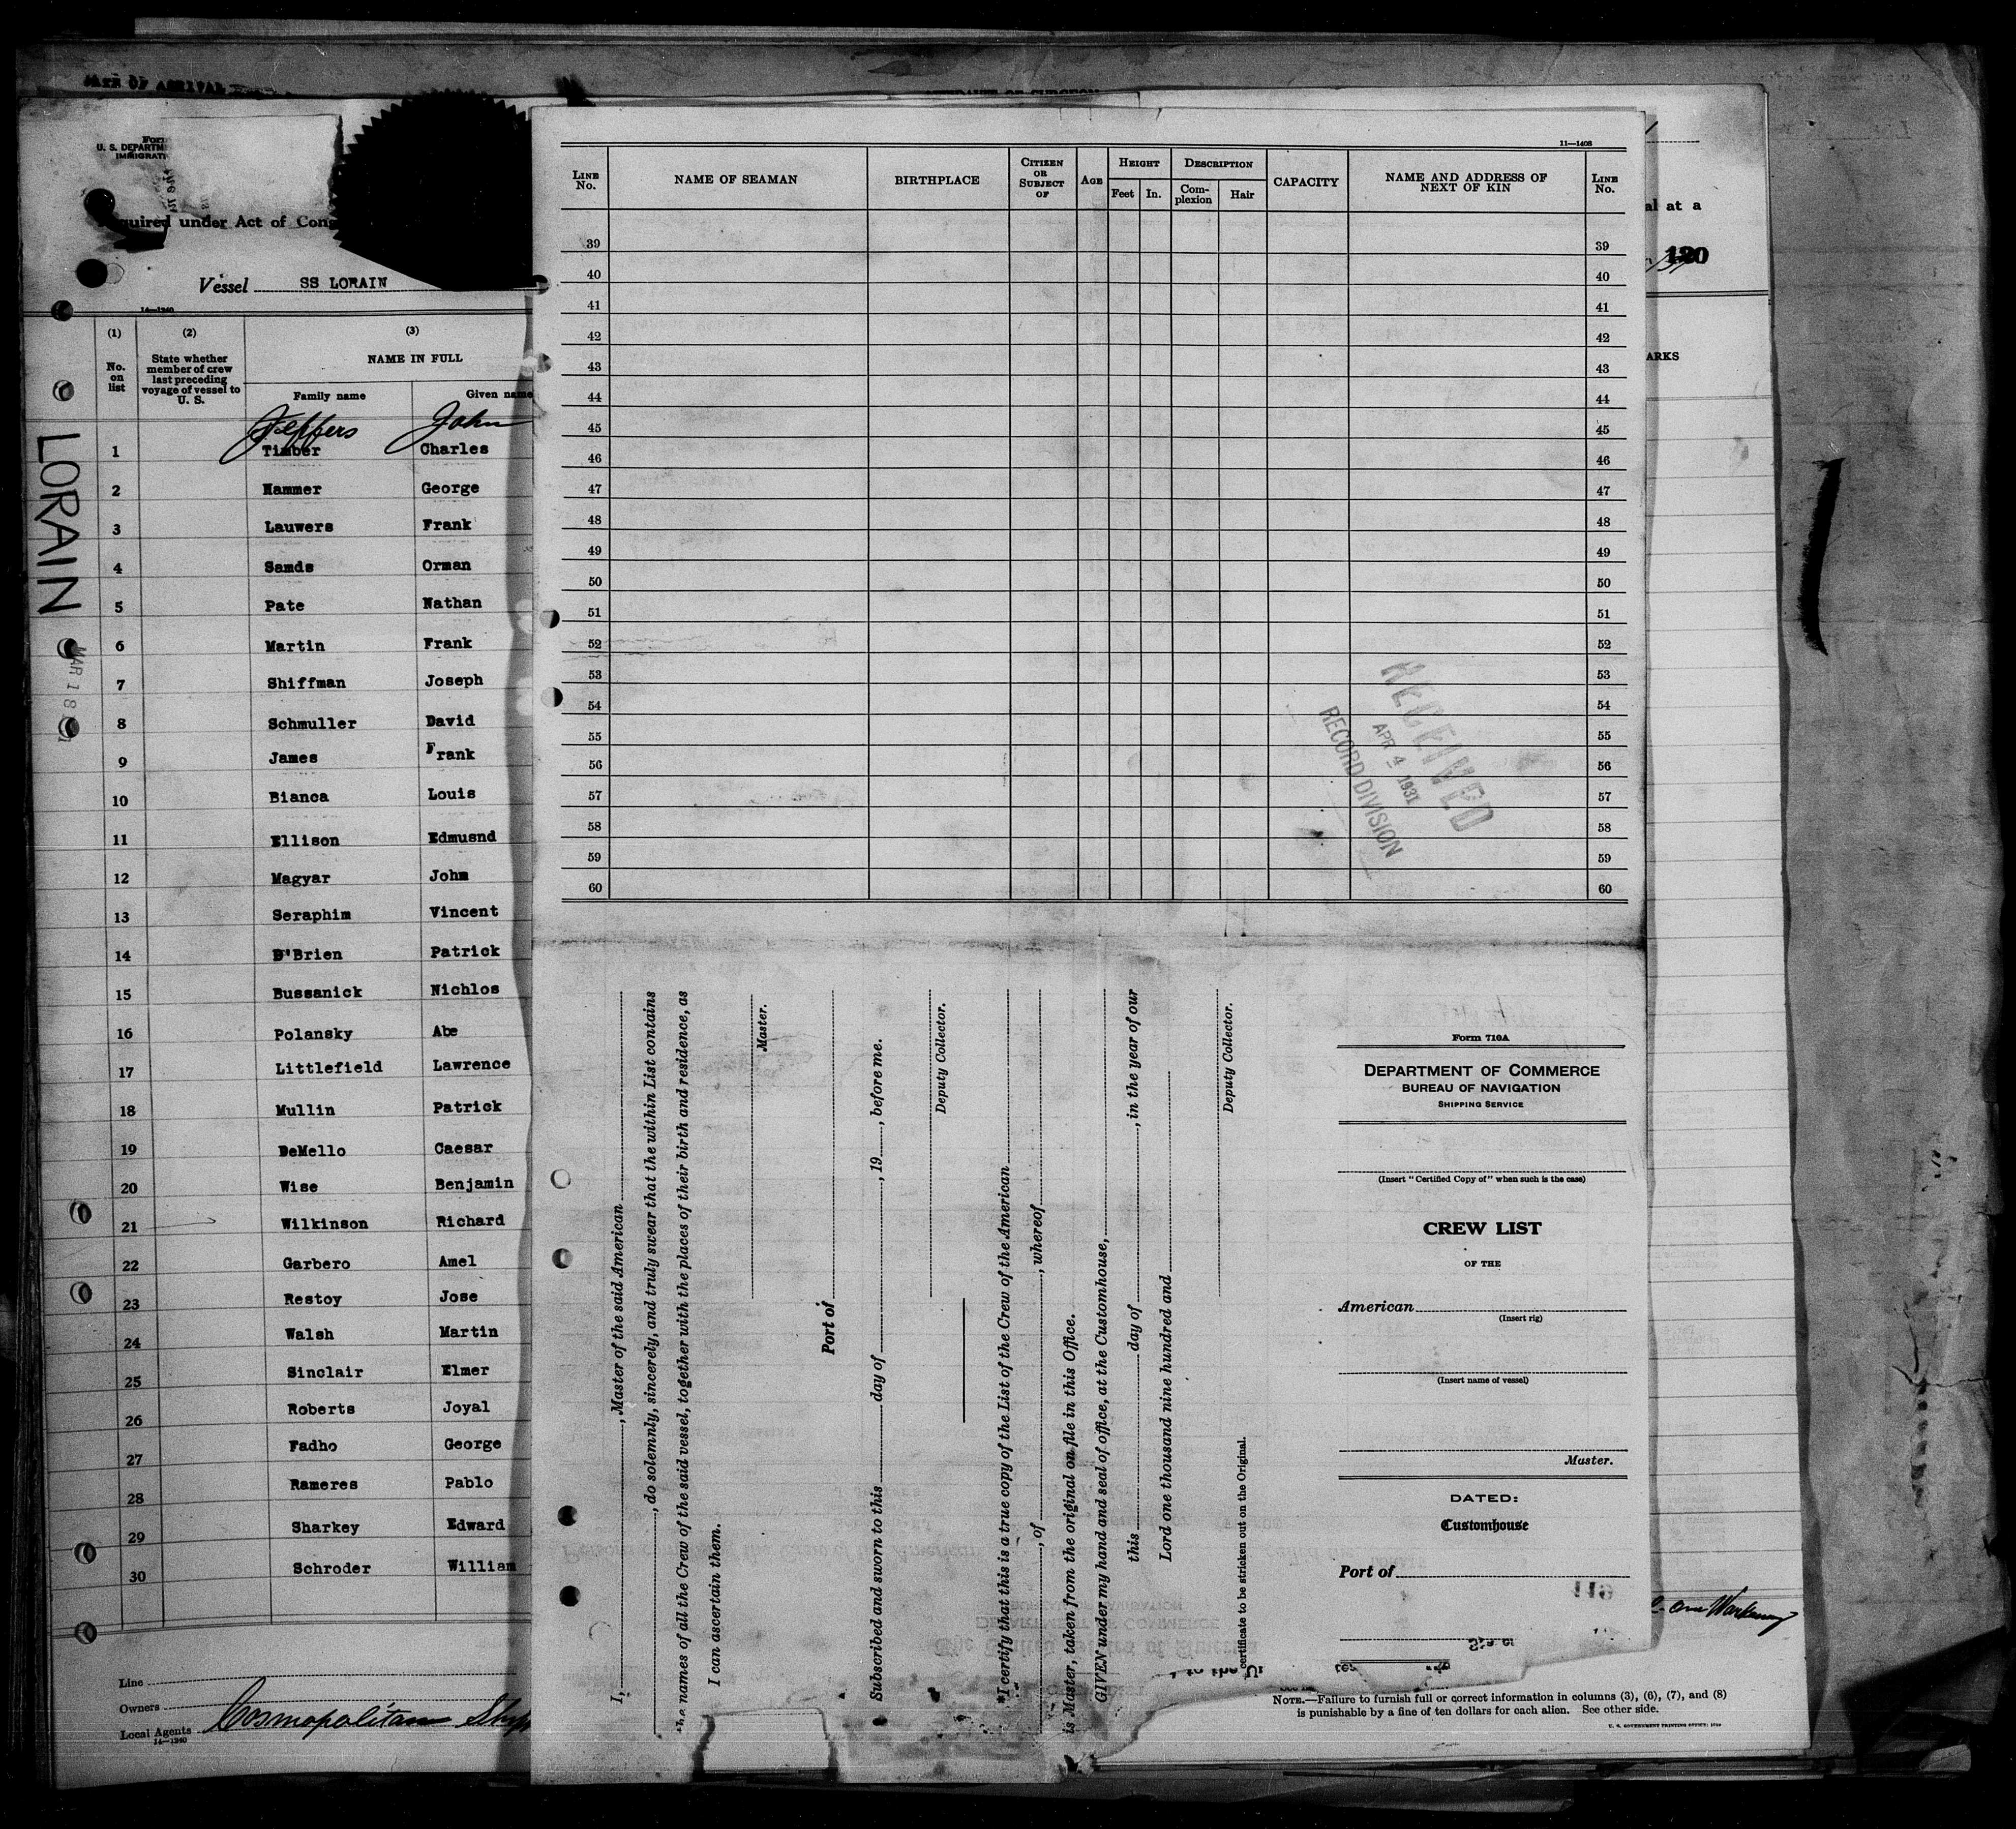 DATE OF ARRIVAL
AFFIDAVIT OF SURGEON
For
U. S. DEPARTM
IMMIGRATI
quired under Act of Cong
Vessel SS LORAIN
14—1240
(1) (2) (3)
No. on list
State whether member of crew last preceding voyage of vessel to U. S.
NAME IN FULL
Family name Given name
Jeffers John
1 Timber Charles
2 Hammer George
3 Lauwers Frank
4 Sands Orman
5 Pate Nathan
6 Martin Frank
7 Shiffman Joseph
8 Schmuller David
9 James Frank
10 Bianca Louis
11 Ellison Edmusnd
12 Magyar John
13 Seraphim Vincent
14 O'Brien Patrick
15 Bussanick Nichlos
16 Polansky Abe
17 Littlefield Lawrence
18 Mullin Patrick
19 DeMello Caesar
20 Wise Benjamin
21 Wilkinson Richard
22 Garbero Amel
23 Restoy Jose
24 Walsh Martin
25 Sinclair Elmer
26 Roberts Joyal
27 Fadho George
28 Rameres Pablo
29 Sharkey Edward
30 Schroder William
LORAIN
MAR 18
Line
Owners
Local Agents Cosmopolitan Ship
14—1240
11—1408
LINE No.
NAME OF SEAMAN
BIRTHPLACE
CITIZEN OR SUBJECT OF
AGE
HEIGHT
Feet In.
DESCRIPTION
Complexion Hair
CAPACITY
NAME AND ADDRESS OF NEXT OF KIN
LINE No.
39 39
40 40
41 41
42 42
43 43
44 44
45 45
46 46
47 47
48 48
49 49
50 50
51 51
52 52
53 53
54 54
55 55
56 56
57 57
58 58
59 59
60 60
RECEIVED
APR 4 1931
RECORD DIVISION
I, , Master of the said American
, do solemnly, sincerely, and truly swear that the within List contains
the names of all the Crew of the said vessel, together with the places of their birth and residence, as
I can ascertain them.
Master.
Port of
Subscribed and sworn to this day of , 19 , before me.
Deputy Collector.
*I certify that this is a true copy of the List of the Crew of the American
, of , whereof
is Master, taken from the original on file in this Office.
GIVEN under my hand and seal of office, at the Customhouse,
this day of , in the year of our
Lord one thousand nine hundred and
Deputy Collector.
certificate to be stricken out on the Original.
Form 710A
DEPARTMENT OF COMMERCE
BUREAU OF NAVIGATION
SHIPPING SERVICE
(Insert "Certified Copy of" when such is the case)
CREW LIST
OF THE
American
(Insert rig)
(Insert name of vessel)
Master.
DATED:
Customhouse
Port of
al at a
120
ARKS
NOTE.—Failure to furnish full or correct information in columns (3), (6), (7), and (8)
is punishable by a fine of ten dollars for each alien. See other side.
U. S. GOVERNMENT PRINTING OFFICE: 1929